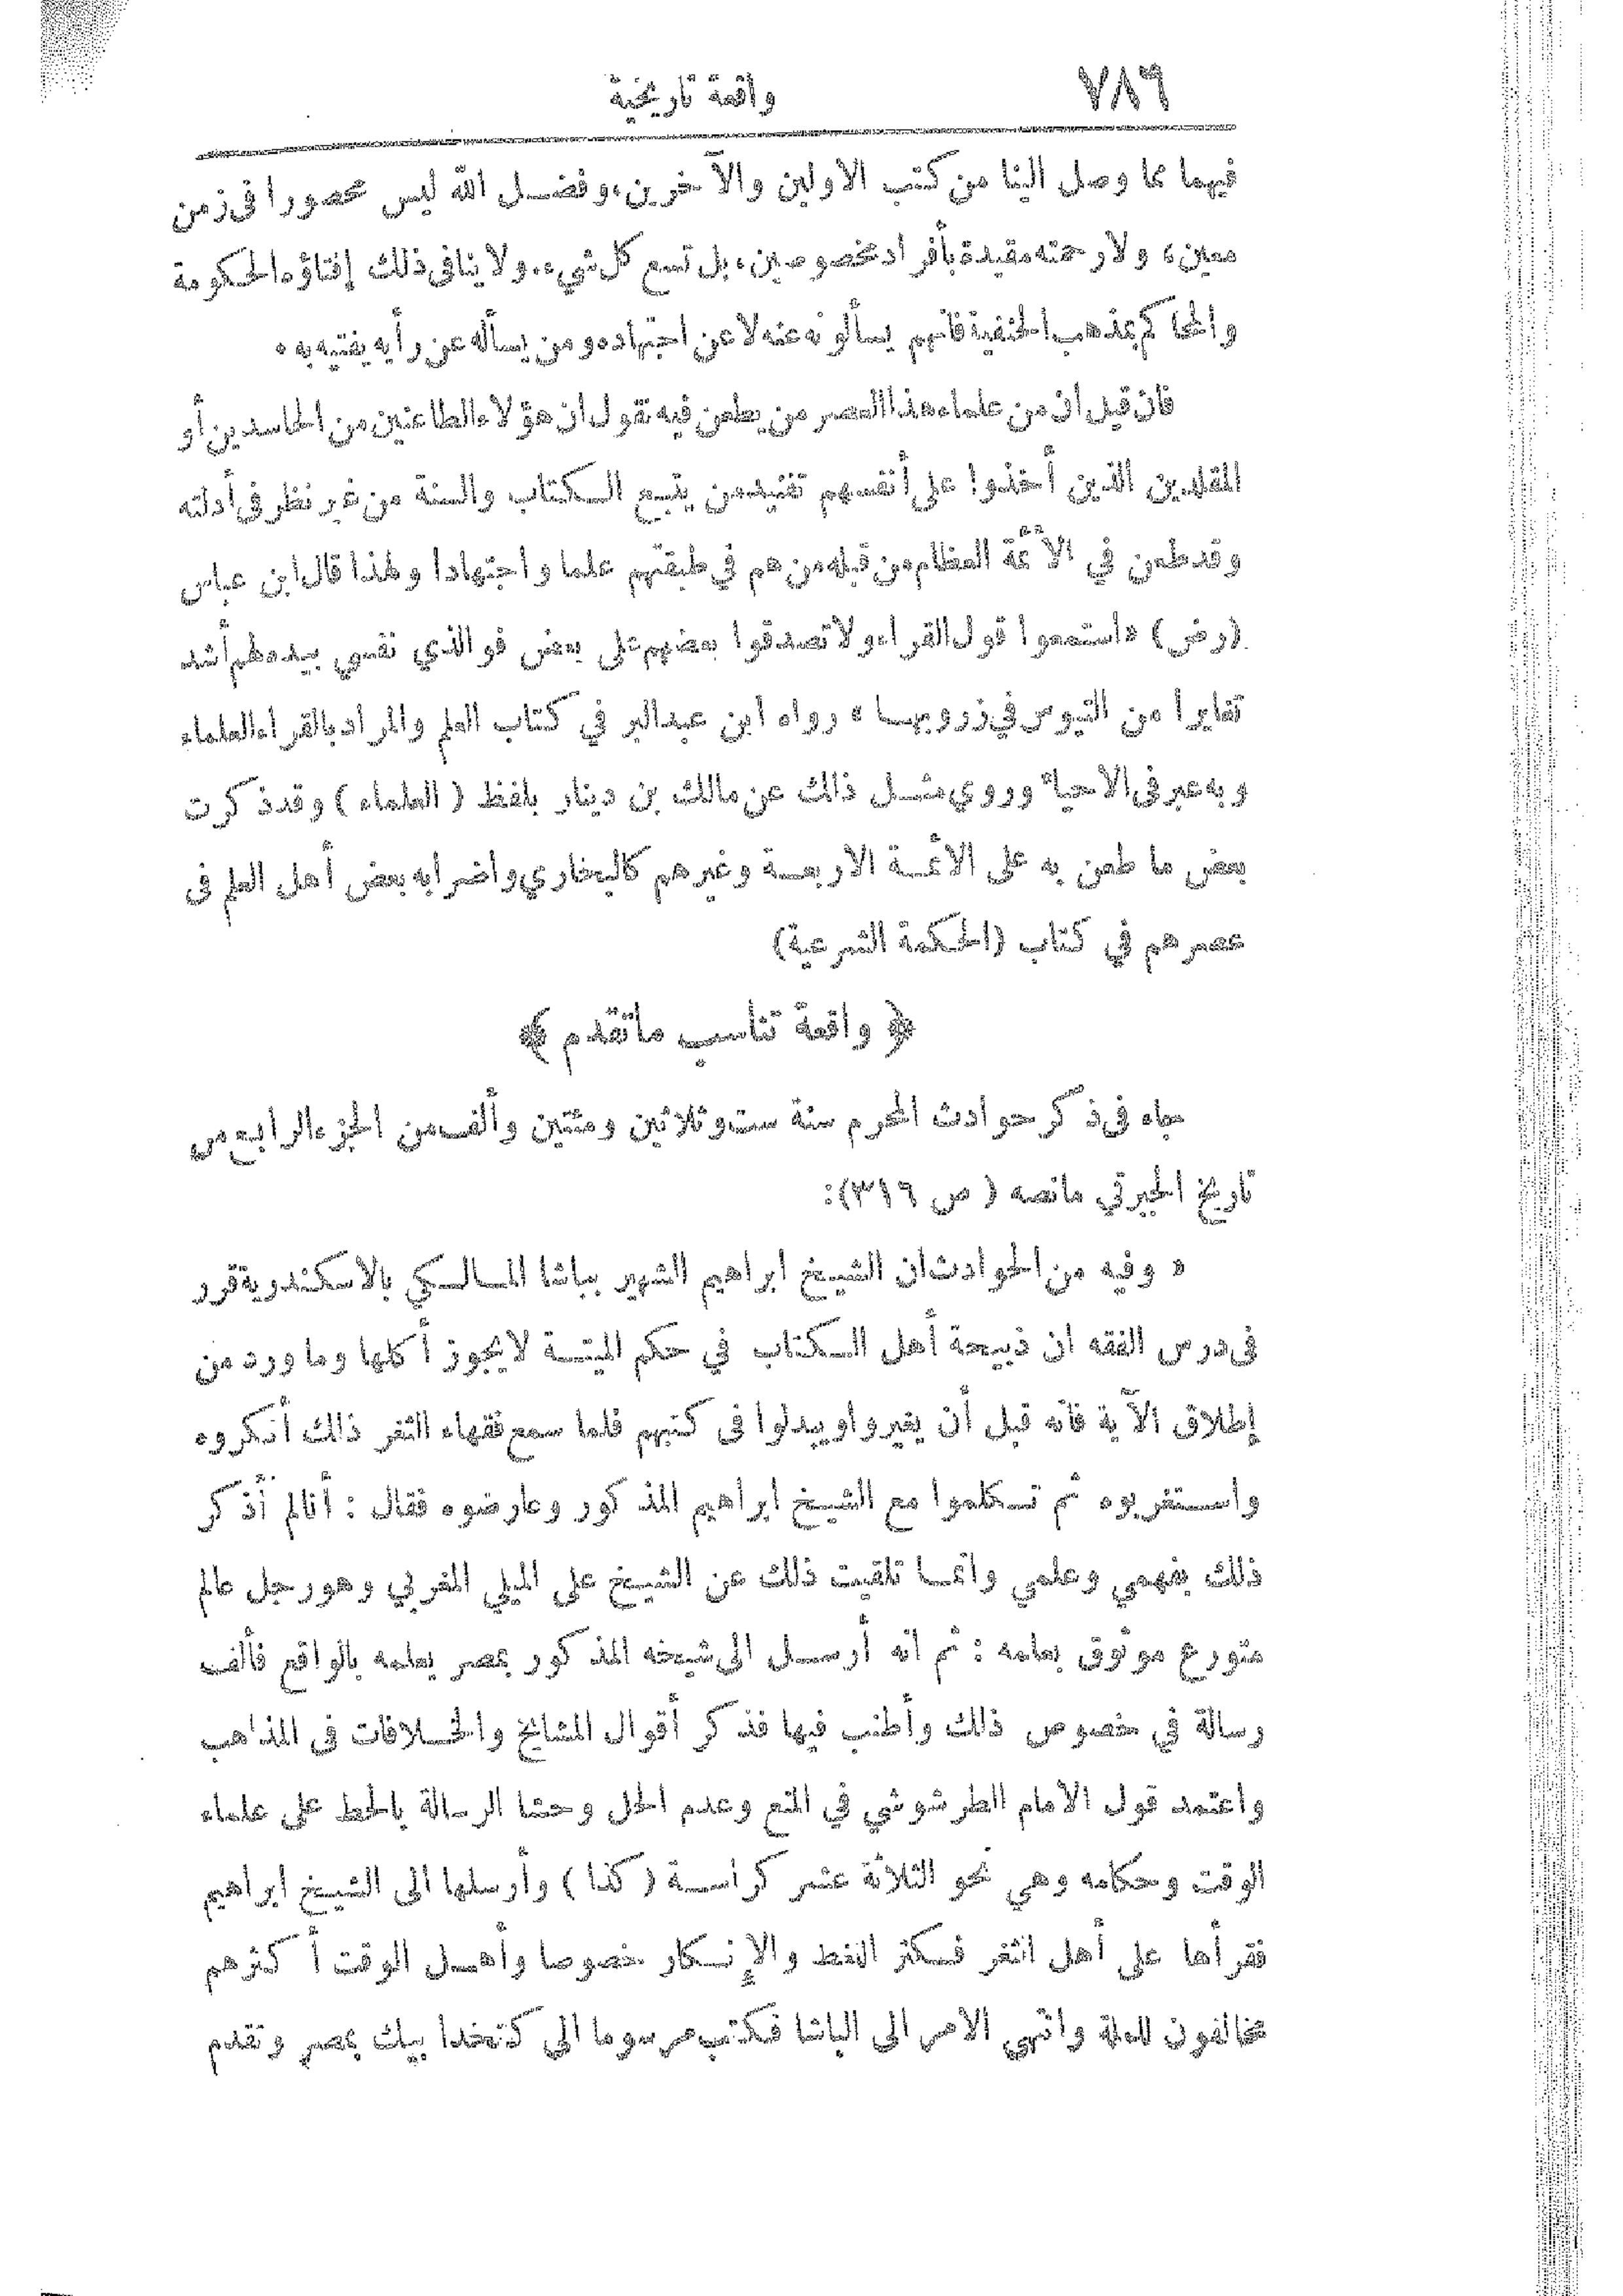 ٧٨٦
واقعة تاريخية
فيهما مما وصل الينا من كتب الاولين والآخرين، وفضل الله ليس محصورا في زمن
معين، ولا رحمته مقيدة بأفراد مخصوصين، بل تسع كل شيء. ولا ينافي ذلك إفتاؤه الحكومة
والمحاكم بمذهب الحنفية فانهم يسألونه عنه لا عن اجتهاده ومن يسأله عن رأيه يفتيه به.
فان قيل ان من علماء هذا العصر من يطعن فيه نقول ان هؤلاء الطاعنين من الحاسدين أو
المقلدين الذين أخذوا على أنفسهم تفنيد من يتبع الكتاب والسنة من غير نظر في أدلته
وقد طعن في الأئمة العظام من قبله من هم في طبقتهم علما واجتهادا ولهذا قال ابن عباس
(رض) «استمعوا قول القراء ولا تصدقوا بعضهم على بعض فوالذي نفسي بيده لهم أشد
تغايرا من التيوس في زروبها» رواه ابن عبد البر في كتاب العلم والمراد بالقراء العلماء
وبه عبر في الاحياء وروي مثل ذلك عن مالك بن دينار بلفظ (العلماء) وقد ذكرت
بعض ما طعن به على الائمة الاربعة وغيرهم كالبخاري واضرابه بعض أهل العلم في
عصرهم في كتاب (الحكمة الشرعية)
﴿ واقعة تناسب ما تقدم ﴾
جاء في ذكر حوادث المحرم سنة ست وثلاثين ومئتين وألف من الجزء الرابع من
تاريخ الجبرتي ما نصه (ص ٣١٩):
« وفيه من الحوادث ان الشيخ ابراهيم الشهير بباشا المالكي بالاسكندرية قرر
في درس الفقه ان ذبيحة أهل الكتاب في حكم الميتة لا يجوز أكلها وما ورد من
إطلاق الآية فانه قبل أن يغيروا ويبدلوا في كتبهم فلما سمع فقهاء الثغر ذلك أنكروه
واستغربوه ثم تكلموا مع الشيخ ابراهيم المذكور وعارضوه فقال : أنا لم أذكر
ذلك بفهمي وعلمي وانما تلقيت ذلك عن الشيخ علي الميلي المغربي وهو رجل عالم
متورع موثوق بعلمه : ثم انه أرسل الى شيخه المذكور بمصر يعلمه بالواقع فألف
رسالة في خصوص ذلك وأطنب فيها فذكر أقوال المشايخ والخلافات في المذاهب
واعتمد قول الامام الطرشوشي في المنع وعدم الحل وحشا الرسالة بالحط على علماء
الوقت وحكامه وهي نحو الثلاثة عشر كراسة (كذا) وأرسلها الى الشيخ ابراهيم
فقرأها على أهل الثغر فكثر اللغط والإنكار خصوصا وأهل الوقت أكثرهم
مخالفون للملة وانتهى الامر الى الباشا فكتب مرسوما الى كتخدا بيك بمصر وتقدم